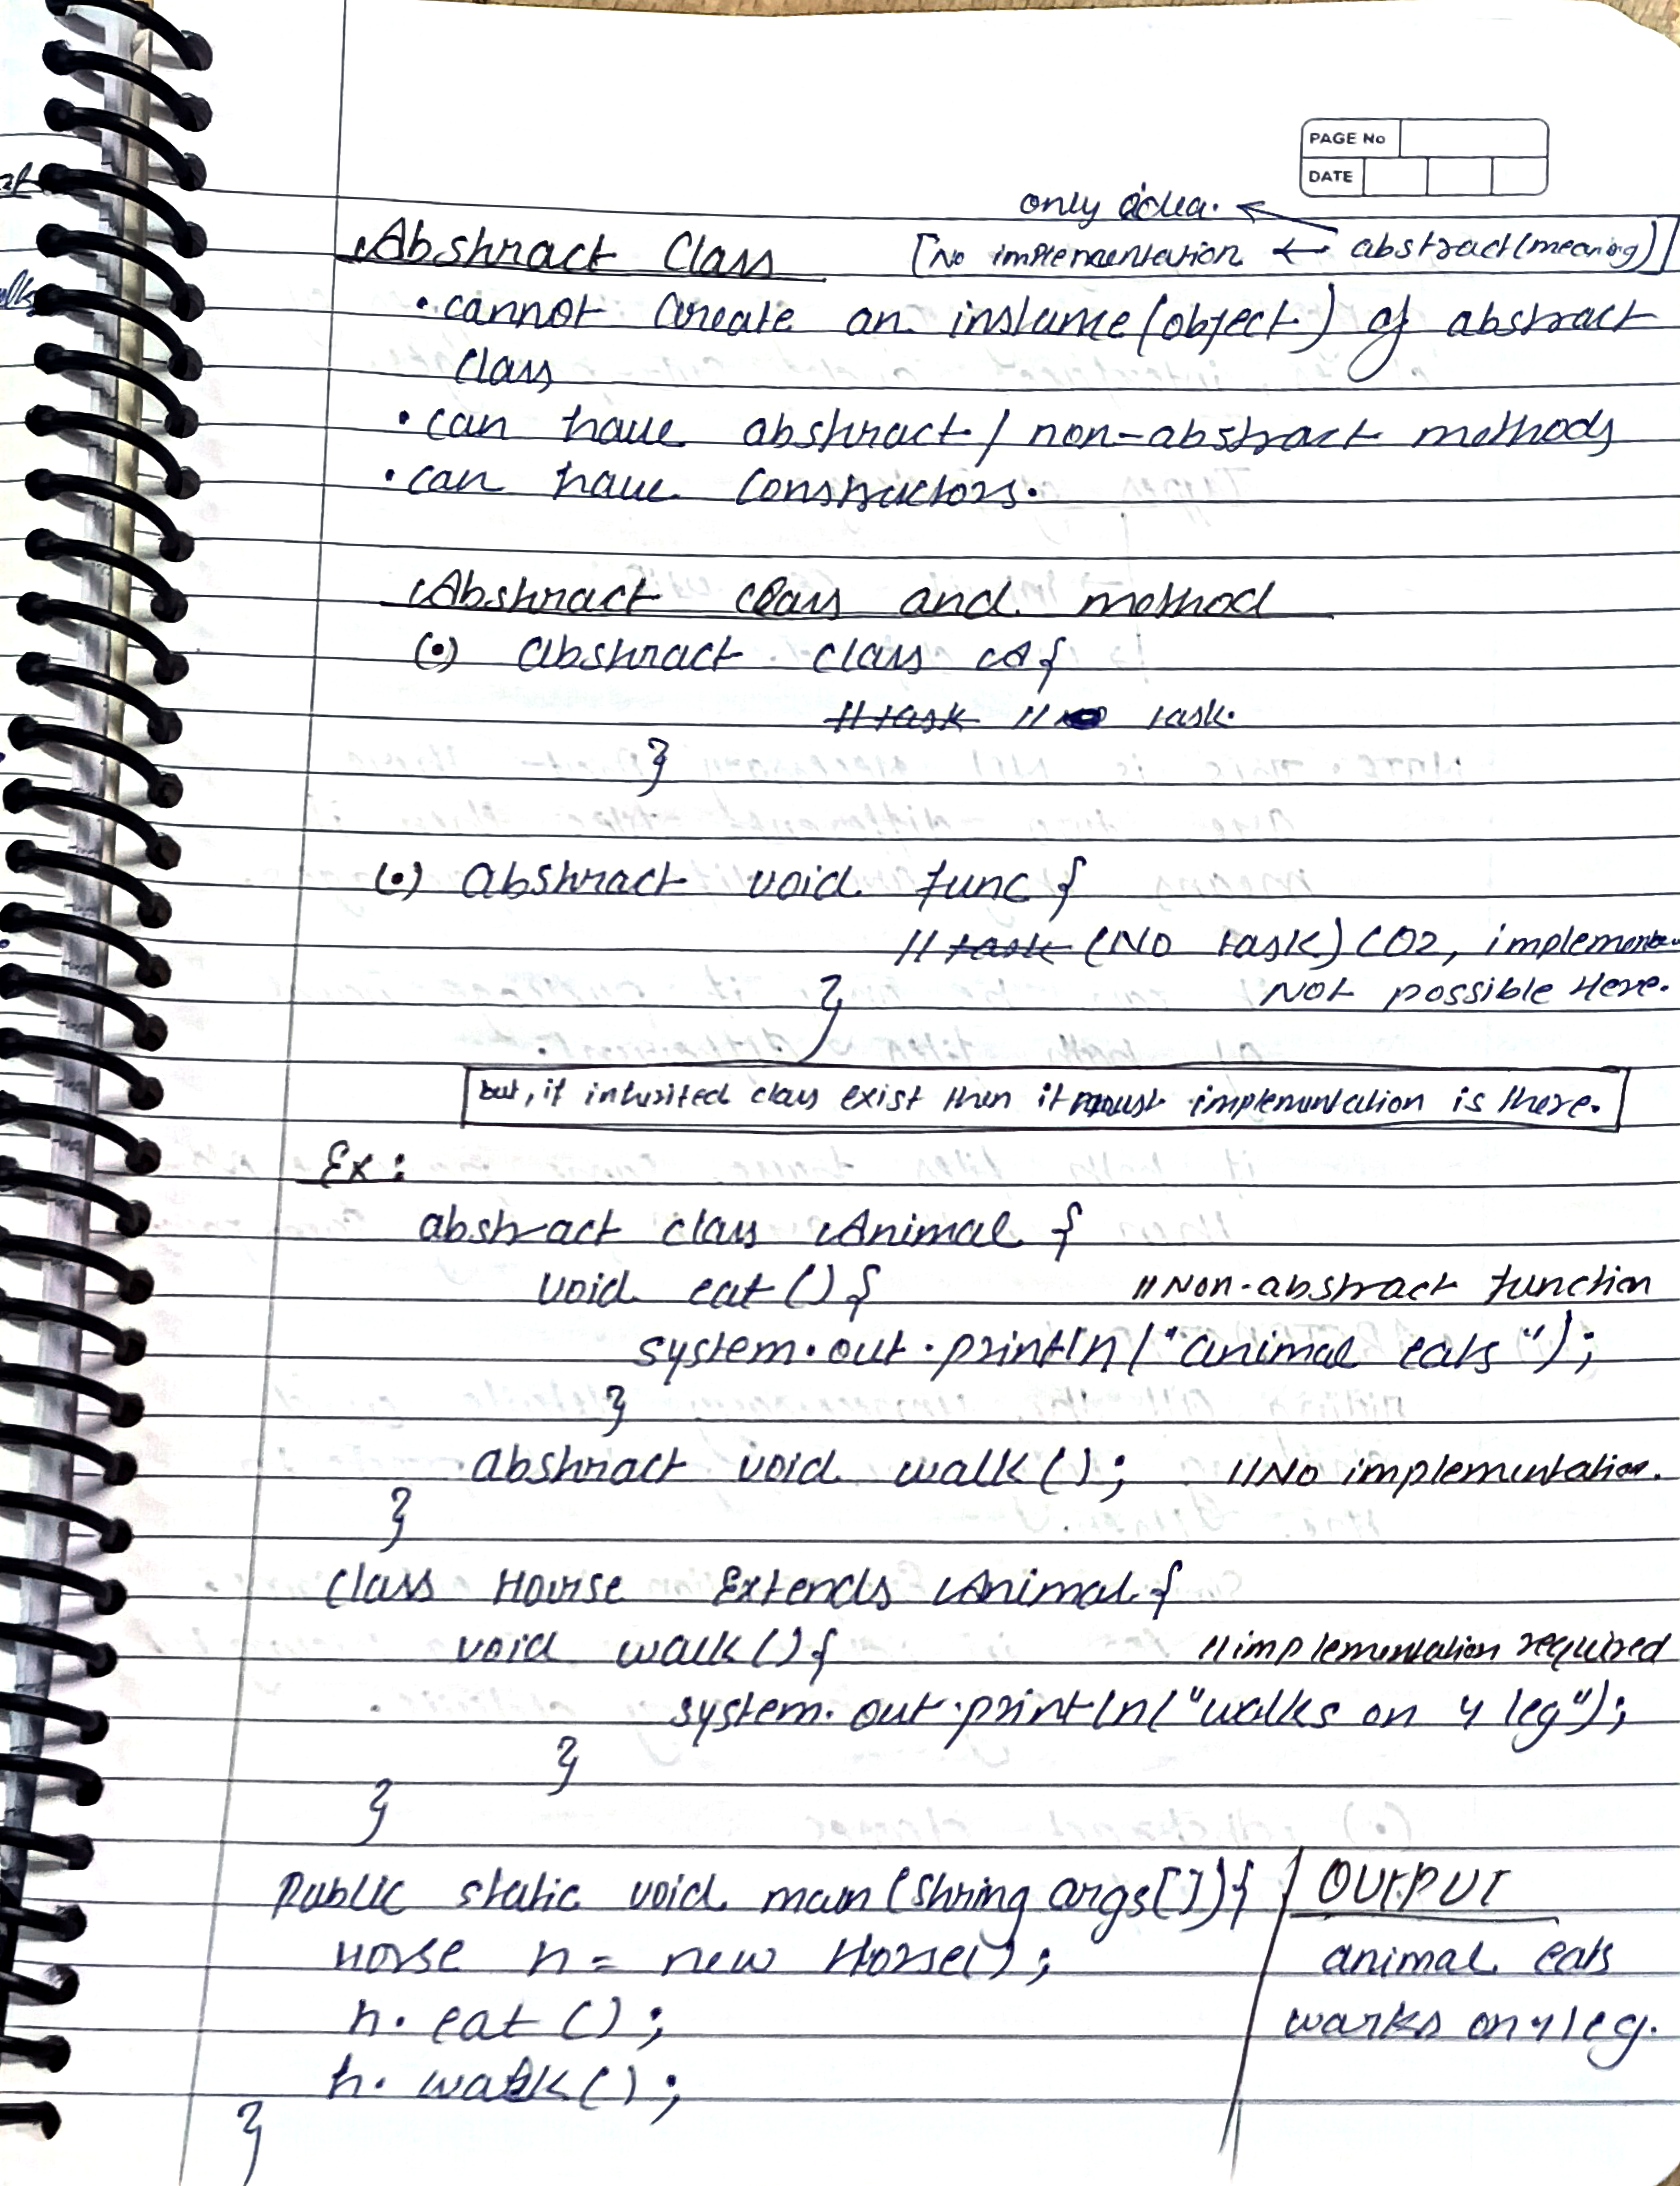 PAGE No
DATE
only idea. ←
Abstract Class [No implementation ← abstract(meaning)]
• cannot create an instance(object) of abstract
class
• can have abstract / non-abstract methods
• can have constructors.
Abstract class and method
(•) abstract class A {
//task // no task.
}
(•) abstract void func {
// task (No task) (02, implementa
Not possible Here.
}
but, if inherited class exist then it must implementation is there.
Ex:
abstract class Animal {
void eat () { //Non-abstract function
system.out.println("animal eats");
}
abstract void walk(); //No implementation.
}
class Hourse Extends Animal {
void walk () { //implementation required
system.out.println("walks on 4 leg");
}
}
public static void main(String args[]){ OUTPUT
Horse h = new Horse(); animal eats
h.eat (); warks on 4 leg.
h.walk();
}